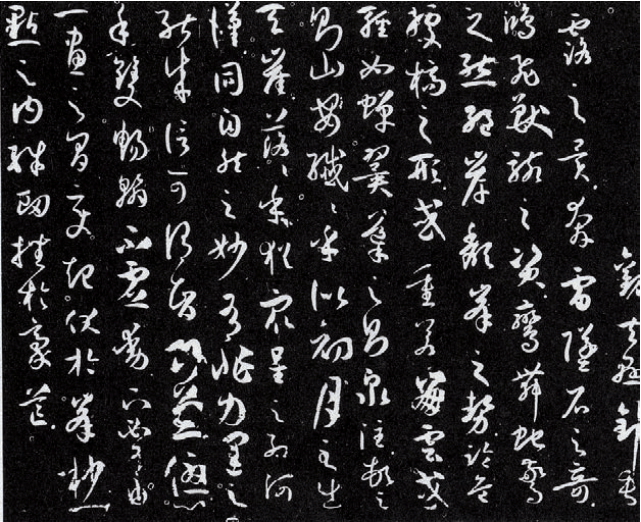 觀夫懸針垂
露之異奔雷墜石之奇
鴻飛獸駭之資鸞舞蛇驚
之態絕岸頹峯之勢臨危
據槁之形或重若崩雲或
輕如蟬翼導之則泉注頓之
則山安纖〻乎似初月之出
天崖落〻乎猶眾星之列河
漢同自然之妙有非力運之
能成信可謂智巧兼優心
手雙暢翰不虛動下必有由
一畫之間變起伏於峯杪一
點之內殊衄挫於豪芒